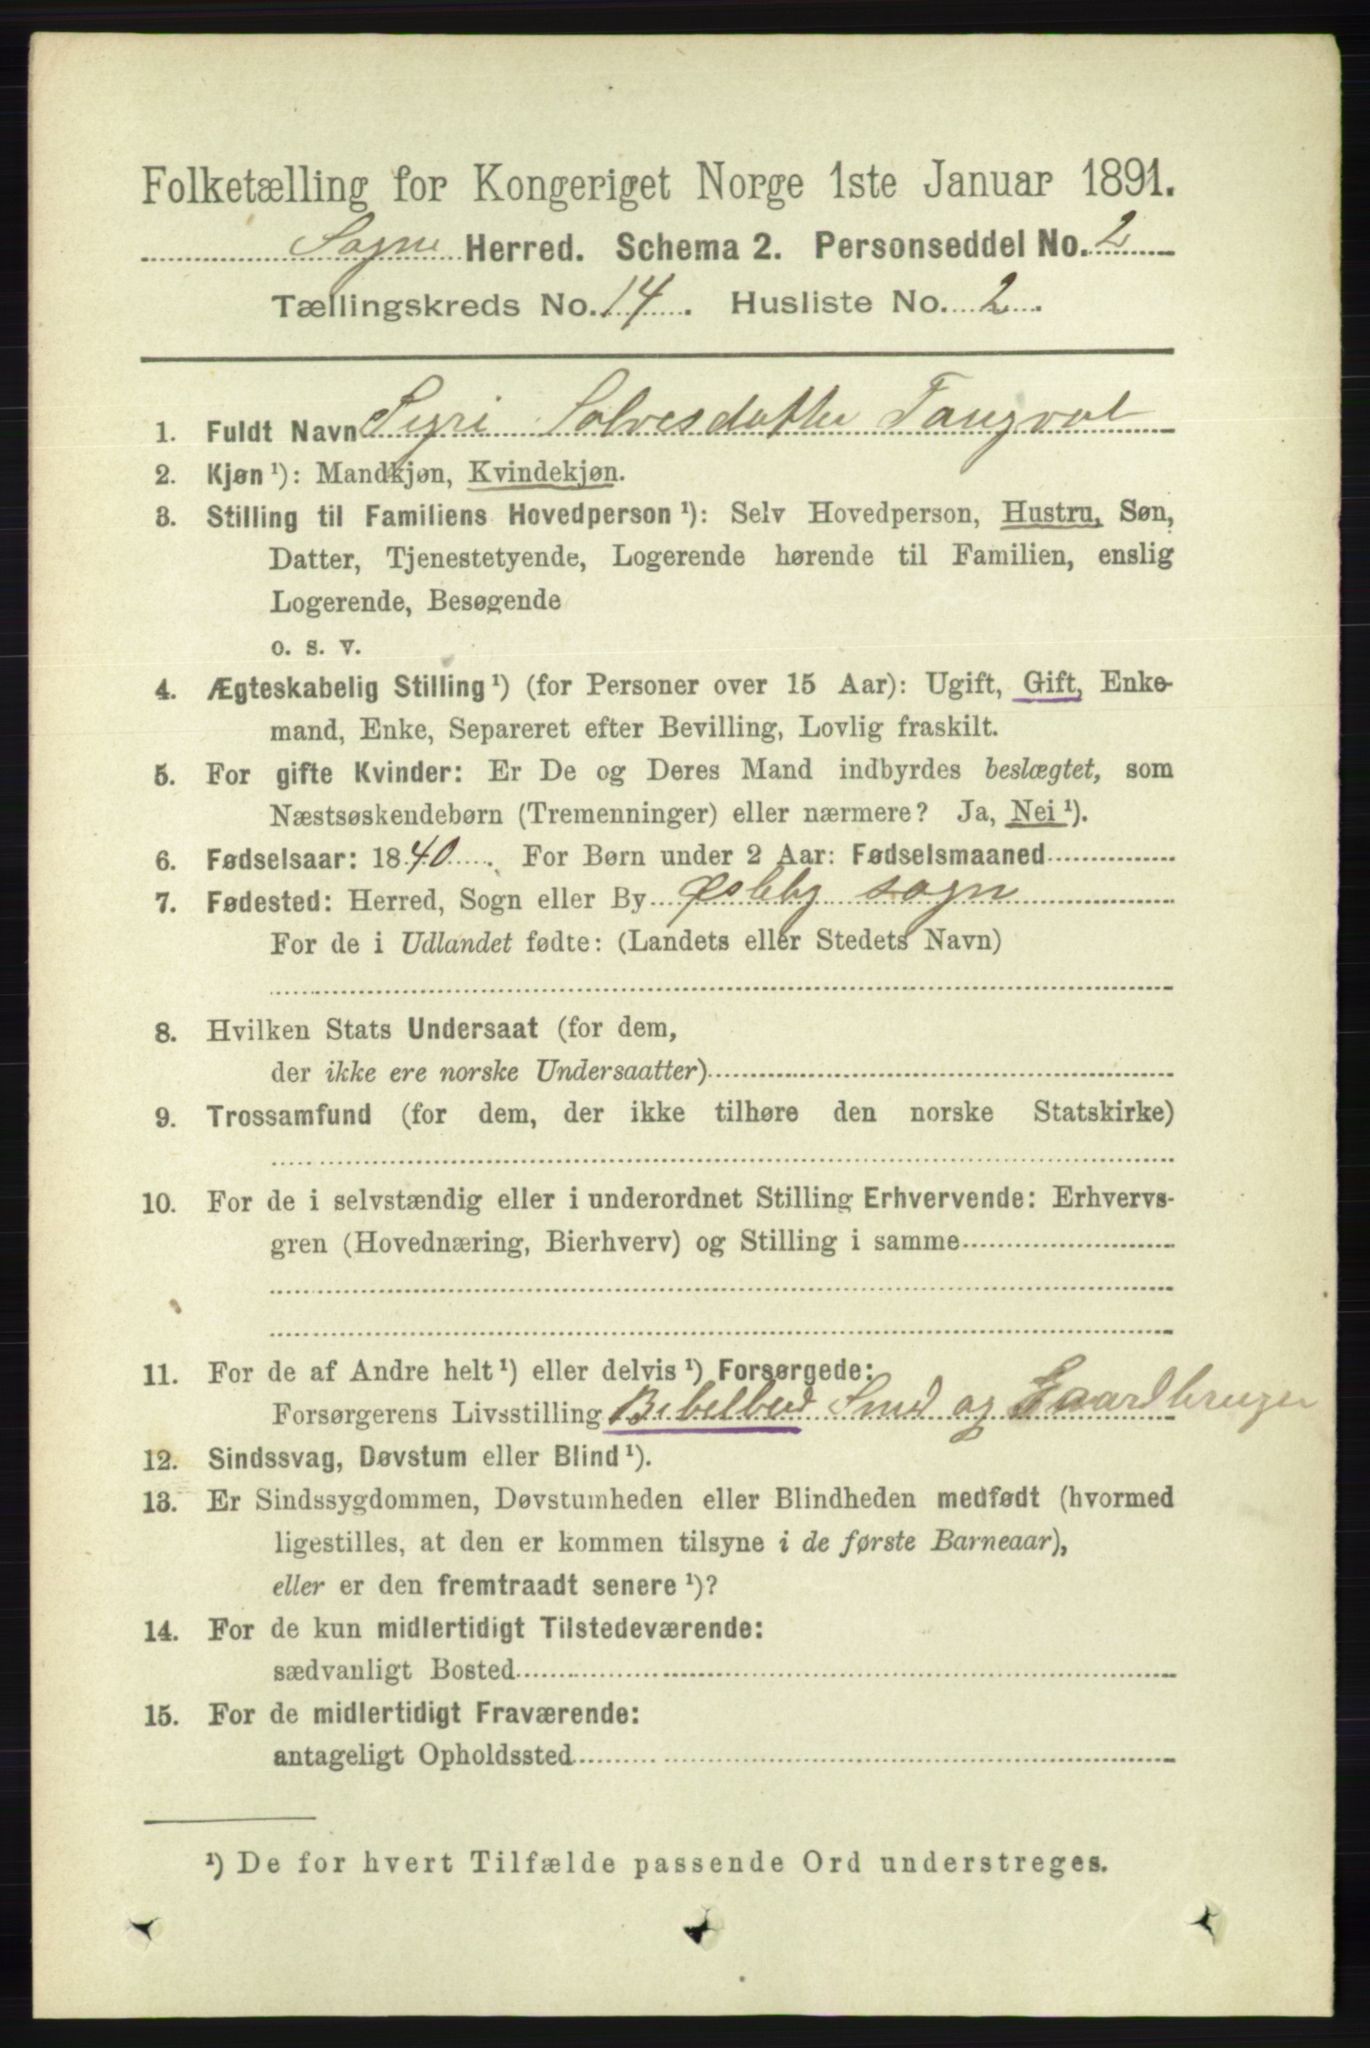 Folketælling for Kongeriget Norge 1ste Januar 1891.
Sogne Herred. Schema 2. Personseddel No. 2
Tællingskreds No. 14. Husliste No. 2.
1. Fuldt Navn Syri Solvesdatter Tangval
2. Kjøn ¹): Mandkjøn, Kvindekjøn.
3. Stilling til Familiens Hovedperson ¹): Selv Hovedperson, Hustru, Søn,
Datter, Tjenestetyende, Logerende hørende til Familien, enslig
Logerende, Besøgende
o. s. v.
4. Ægteskabelig Stilling ¹) (for Personer over 15 Aar): Ugift, Gift, Enke-
mand, Enke, Separeret efter Bevilling, Lovlig fraskilt.
5. For gifte Kvinder: Er De og Deres Mand indbyrdes beslægtet, som
Næstsøskendebørn (Tremenninger) eller nærmere? Ja, Nei ¹).
6. Fødselsaar: 1840. For Børn under 2 Aar: Fødselsmaaned
7. Fødested: Herred, Sogn eller By Øsleby sogn
For de i Udlandet fødte: (Landets eller Stedets Navn)
8. Hvilken Stats Undersaat (for dem,
der ikke ere norske Undersaatter)
9. Trossamfund (for dem, der ikke tilhøre den norske Statskirke)
10. For de i selvstændig eller i underordnet Stilling Erhvervende: Erhvervs-
gren (Hovednæring, Bierhverv) og Stilling i samme
11. For de af Andre helt ¹) eller delvis ¹) Forsørgede:
Forsørgerens Livsstilling Bibelbud Smed og Gaardbruger
12. Sindssvag, Døvstum eller Blind ¹).
13. Er Sindssygdommen, Døvstumheden eller Blindheden medfødt (hvormed
ligestilles, at den er kommen tilsyne i de første Barneaar),
eller er den fremtraadt senere ¹)?
14. For de kun midlertidigt Tilstedeværende:
sædvanligt Bosted
15. For de midlertidigt Fraværende:
antageligt Opholdssted
¹) De for hvert Tilfælde passende Ord understreges.